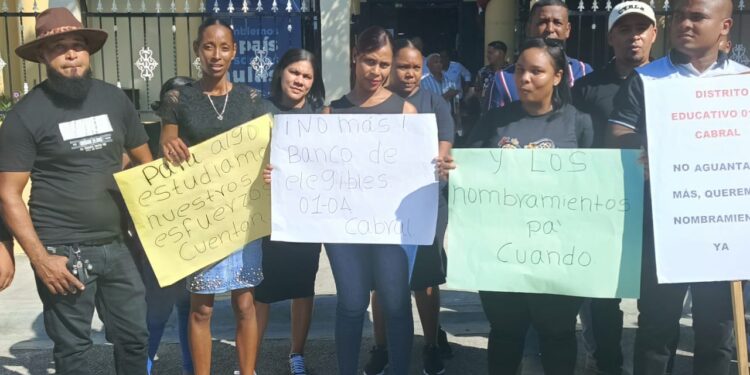 Para algo
estudiamos
nuestros
esfuerzos
Cuentan
¡No más!
Banco de
elegibles
01-04
Cabral
Y los
nombramientos
pa'
Cuando
DISTRITO
EDUCATIVO 01
CABRAL
NO AGUANTA
MÁS, QUEREM
NOMBRAMIEN
YA